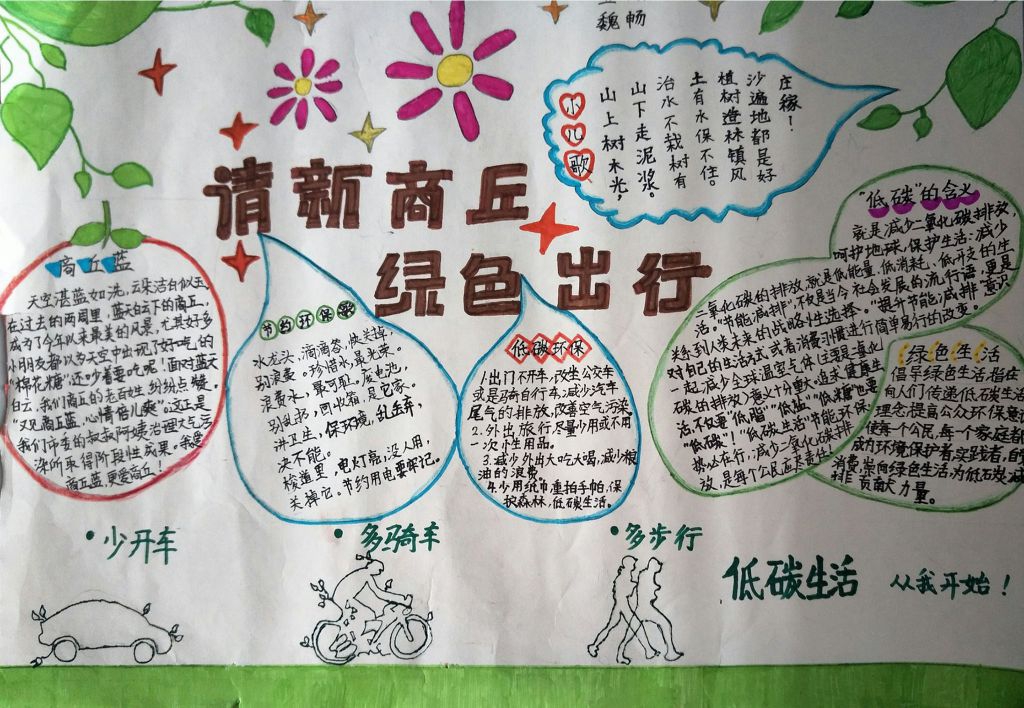 魏畅
请新商丘
绿色出行
小儿歌
山上树木光，
山下走泥浆。
治水不栽树有
土有水保不住。
植树造林镇风
沙遍地都是好
庄稼！
商丘蓝
天空湛蓝如洗，云朵洁白似玉
在过去的两周里，蓝天白云下的商丘，
成为了今年以来最美的风景，尤其好多
小朋友都以为天空中出现了“好吃”的
“棉花糖”还吵着要吃呢！“面对蓝天
白云，我们商丘的老百姓纷纷点赞。
“又见商丘蓝，心情倍儿爽。”这正是
我们市委的叔叔阿姨治理大气污
染的取得阶段性成果。我爱
商丘蓝，更爱商丘！
节约环保歌
水龙头，滴滴答，快关掉，
别浪费。珍惜水，是光荣。
浪费水，最可耻。废电池，
别乱扔，回收箱，是它家。
讲卫生，保环境，乱丢弃，
决不能。
楼道里，电灯亮，没人用，
关掉它。节约用电要牢记。
低碳环保
1.出门不开车，改坐公交车
或是骑自行车，减少汽车
尾气的排放，改善空气污染。
2.外出旅行尽量少用或不用
一次性用品。
3.减少外出大吃大喝，减少粮
油的浪费
4.少用纸巾重拍手帕，保
护森林，低碳生活。
“低碳”的含义
就是减少二氧化碳排放，
呵护地球，保护生活，减少
二氧化碳的排放，就是低能量，低消耗，低开支的生
活。“节能减排”不仅是当今社会发展的流行语，更是
关系到人类未来的战略性选择。“提升节能减排”意识
对自己的生活方式或者消费习惯进行简单易行的改变。
一起减少全球温空气体（主要是减少二氧化
碳的排放）意义十分重大。追求健康生
活，不仅要“低脂”“低盐”“低糖”也要
“低碳”！“低碳生活”节能环保
势必在行，减少二氧化碳排
放，是每个公民应尽责任。
绿色生活
倡导绿色生活指在
向人们传递低碳生活
理念，提高公众环保意识
使每个公民，每个家庭都
成为环境保护者，实践者，的
消费，崇尚绿色生活，为低碳减
排贡献力量。
•少开车
•多骑车
•多步行
低碳生活 从我开始！